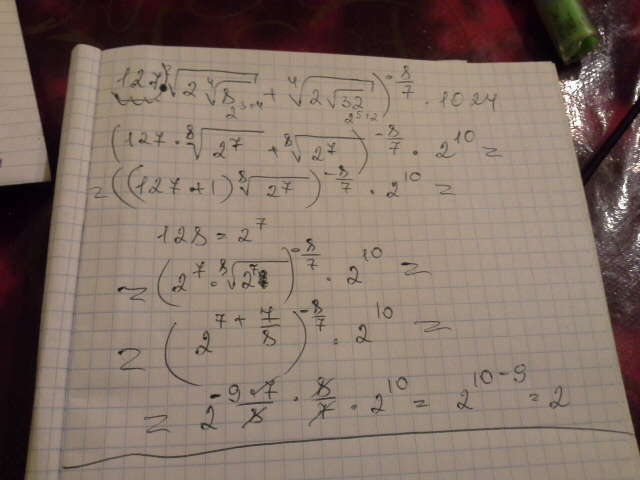 127 · √(2 ∜8 + ∜(2√32))^(-8/7) · 1024
2^(3+4) 2^(5+2)
(127 · ⁸√(2^7) + ⁸√(2^7))^(-8/7) · 2^10 =
= ((127+1) ⁸√(2^7))^(-8/7) · 2^10 =
128 = 2^7
= (2^7 · ⁸√(2^7))^(-8/7) · 2^10 =
= (2^(7 + 7/8))^(-8/7) · 2^10 =
= 2^(-9·7/8 · 8/7) · 2^10 = 2^(10-9) = 2